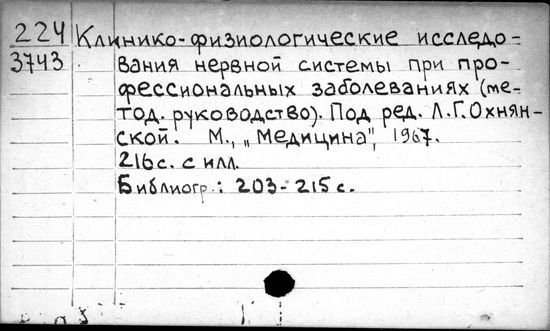 224 Клинико-физиологические исследо=
3743 вания нервной системы при про-
фессиональных заболеваниях (ме-
тод. руководство). Под ред. Л.Г. Охнян-
ской. М., „Медицина", 1967.
216 с. с илл.
Библиогр.: 203-215 с.